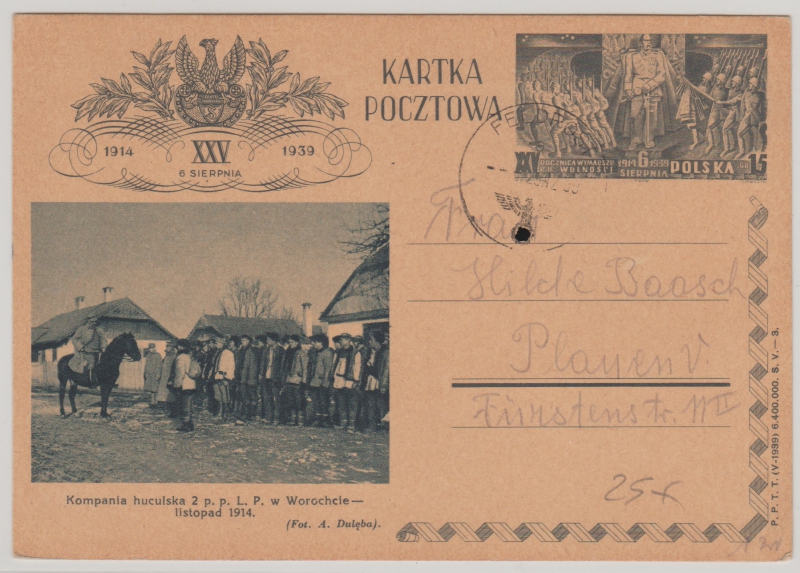 KARTKA
POCZTOWA
1914 XXV 1939
6 SIERPNIA
XXV ROCZNICA WYMARSZU 1914 6 1939 POLSKA GR 15
WOLNOŚCI SIERPNIA
FELDPOST
Frau
Hilde Baasch
Plauen V.
Fürstenstr.
25
Kompania huculska 2 p. p. L. P. w Worochcie—
listopad 1914.
(Fot. A. Dulęba).
P. P. T. T. (V-1939) 6.400.000. S. V.— 3.